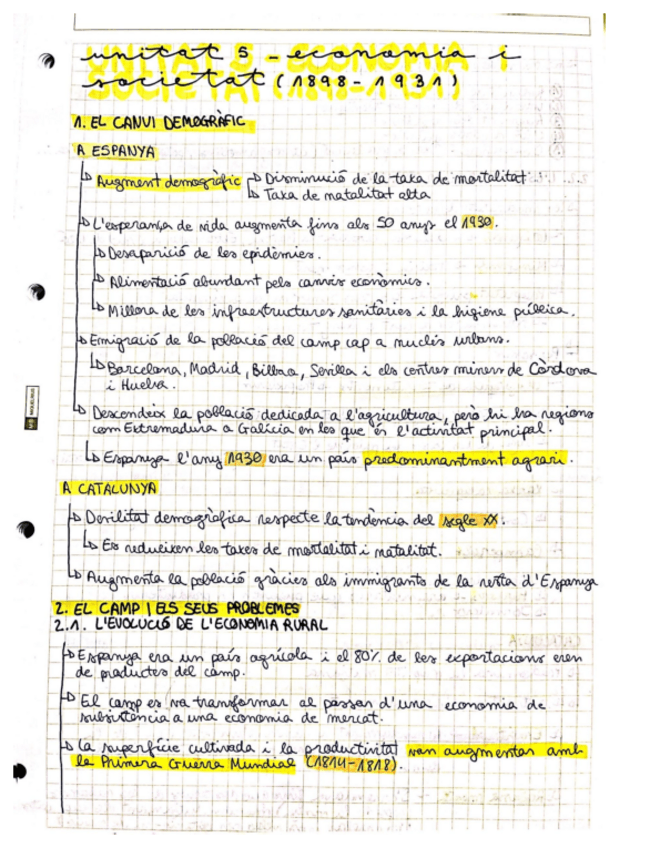 unitat 5 - economia i
societat (1898-1931)
1. EL CANVI DEMOGRÀFIC
A ESPANYA
Augment demogràfic Disminució de la taxa de mortalitat
Taxa de natalitat alta
L'esperança de vida augmenta fins als 50 anys el 1930.
Desaparició de les epidèmies.
Alimentació abundant pels canvis econòmics.
Millora de les infraestructures sanitàries i la higiene pública.
Emigració de la població del camp cap a nuclis urbans.
Barcelona, Madrid, Bilbao, Sevilla i els centres miners de Còrdova
i Huelva.
Descendeix la població dedicada a l'agricultura, però hi ha regions
com Extremadura o Galícia en les que és l'activitat principal.
Espanya l'any 1930 era un país predominantment agrari.
A CATALUNYA
Devilitat demogràfica respecte la tendència del segle XX.
Es redueixen les taxes de mortalitat i natalitat.
Augmenta la població gràcies als immigrants de la resta d'Espanya
2. EL CAMP I ELS SEUS PROBLEMES
2.1. L'EVOLUCIÓ DE L'ECONOMIA RURAL
Espanya era un país agrícola i el 80% de les exportacions eren
de productes del camp.
El camp es va transformar al passar d'una economia de
subsistència a una economia de mercat.
La superfície cultivada i la productivitat van augmentar amb
la Primera Guerra Mundial (1814-1818).